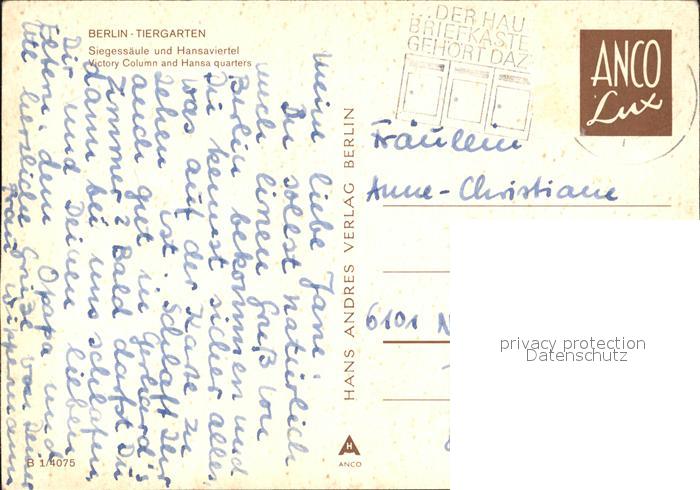 BERLIN - TIERGARTEN
Siegessäule und Hansaviertel
Victory Column and Hansa quarters
Meine liebe Jani!
Du sollst natürlich
auch einen Gruß von
Berlin bekommen und
Du kennst sicher alles
was auf der Karte zu
sehen ist. Schlaft Ihr
auch gut in Gerhard's
Zimmer? Bald darfst Du
dann bei uns schlafen.
Dir und Deinen lieben
Eltern, dem Opapa und
herzliche Grüße von Deiner
Frau
B 1/4075
HANS ANDRES VERLAG BERLIN
H
ANCO
DER HAU
BRIEFKASTE
GEHÖRT DAZ
ANCO
Lux
Fräulein
Anne-Christiane
6101 N
privacy protection
Datenschutz